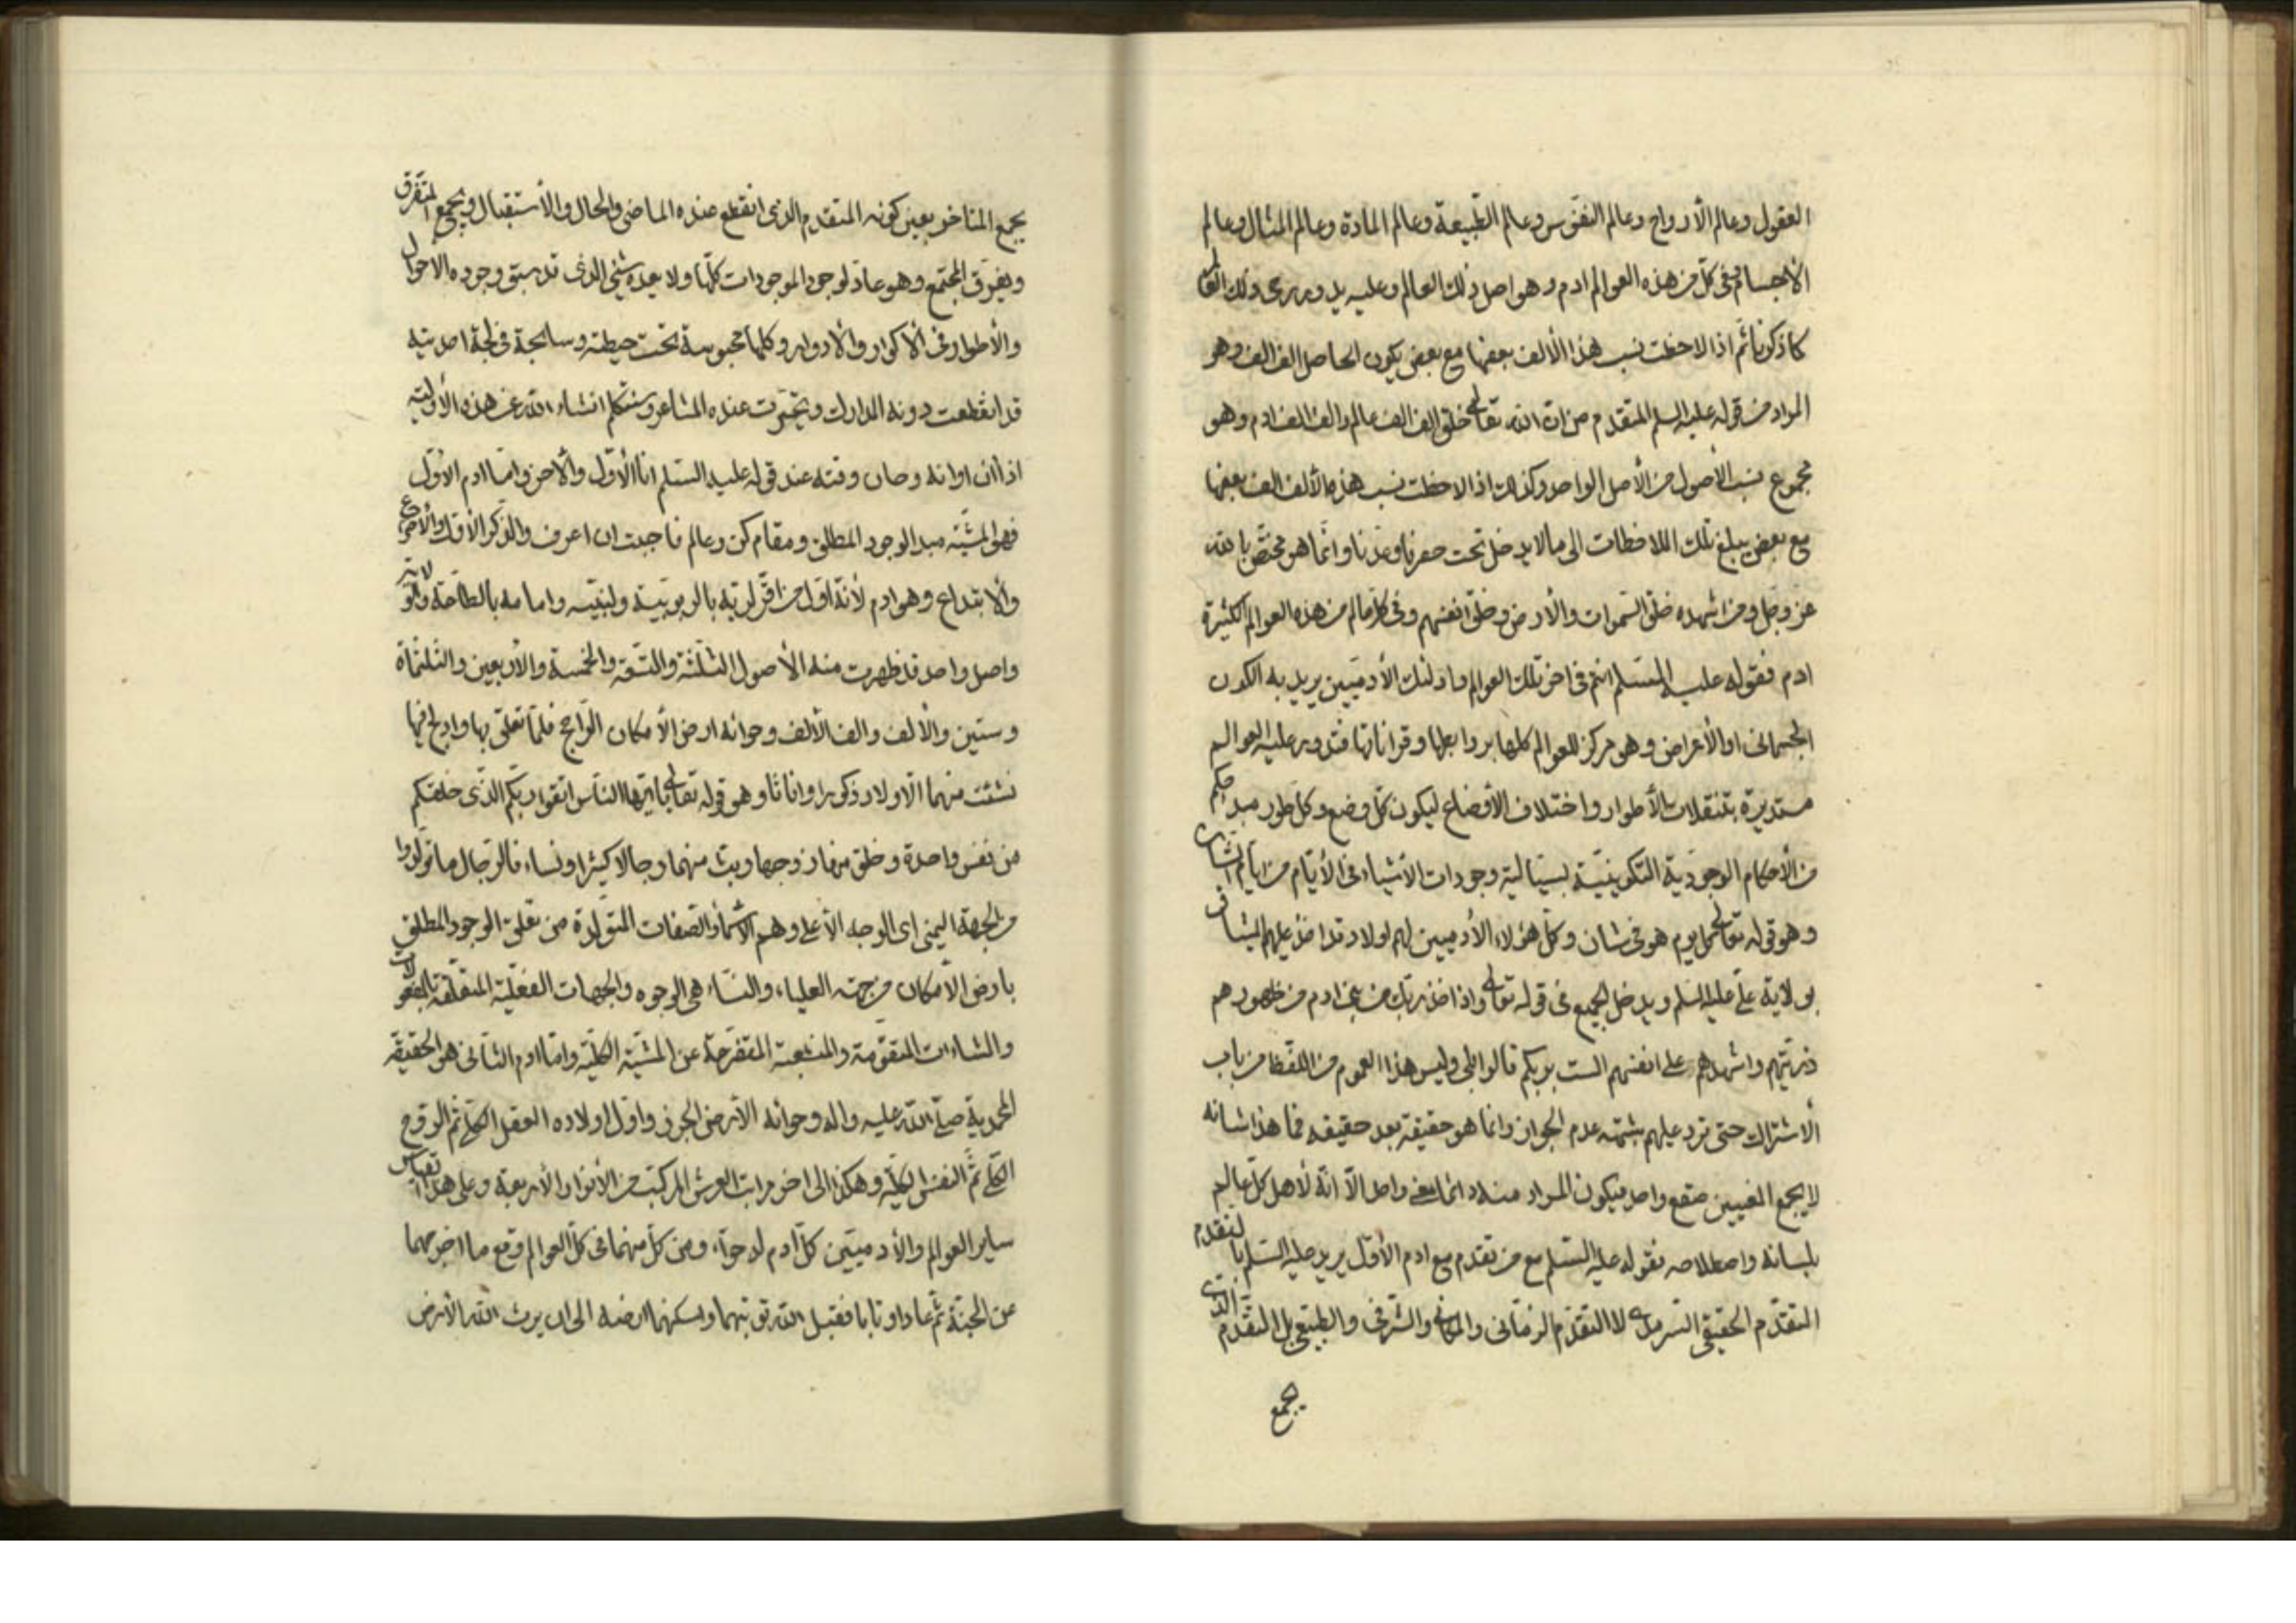 العقول وعالم الأرواح وعالم النفوس وعالم الطبيعة وعالم المادة وعالم المثال وعالم
الأجسام ففى كل من هذه العوالم ادم وهو اصل ذلك العالم وعليه يدور رحى ذلك العالم
كما ذكرنا ثم اذا لاحظت نسب هذا الألف بعضها مع بعض يكون الحاصل الف الف وهو
المراد من قوله عليه السلم المتقدم من ان الله تعالى خلق الف الف عالم والف الف ادم وهو
مجموع نسب الأصول من الأصل الواحد وكذلك اذا لاحظت نسب هذه الألف الف بعضها
مع بعض يبلغ تلك الملاحظات الى ما لا يدخل تحت حصرنا وعدنا وانما هو مختص بالله
عز وجل ومن اشهده خلق السموات والأرض وخلق انفسهم وفى كل عالم من هذه العوالم الكثيرة
ادم فقوله عليه السلم انتم فى اخر تلك العوالم واولئك الأدميين يريد به الكون
الجسمانى او الأعراض وهو مركز للعوالم كلها بروابطها وقراناتها فتدور عليه العوالم
مستديرة بتنقلات الأطوار واختلاف الأوضاع ليكون كل وضع وكل طور مبدء حكم
من الأحكام الوجودية التكوينية وجودات الاشياء فى الأيام من ايام الشان
وهو قوله تعالى كل يوم هو فى شان وكل هؤلاء الأدميين لهم اولاد قد اخذ عليهم الميثاق
بولاية على عليه السلم ويدخل الجميع فى قوله تعالى واذ اخذ ربك من بنى ادم من ظهورهم
ذريتهم واشهدهم على انفسهم الست بربكم قالوا بلى وليس هذا العموم من اللفظ من باب
الأشتراك حتى ترد عليهم شبهة عدم الجواز وانما هو حقيقة بعد حقيقة فما هذا شانه
لا يجمع المعنيين صقع واحد فيكون المراد منه دائما معنى واحد الا انه لأهل كل عالم
بلسانه واصطلاحه فقوله عليه السلم مع من تقدم مع ادم الأول يريد عليه السلم بالتقدم
التقدم الحقيقى السرمدى لا التقدم الزمانى والمكانى والشرفى والطبيعى بل التقدم الذى
يجمع
يجمع المتاخر بعين كونه المتقدم الذى انقطع عنده الماضى والحال والأستقبال ويجمع المتفرق
ويفرق المجتمع وهو عاد لوجود الموجودات كلها ولا يعده شئ الذى قد سبق وجوده الأحوال
والأطوار فى الأكوار والأدوار وكلها محبوسة تحت حيطته وسابحة فى لجة احديته
قد انقطعت دونه المدارك وتحيرت عنده المشاعر وسنتكلم انشاء الله عن هذه الأولية
اذا ان اوانه وحان وقته عند قوله عليه السلم انا الأول والأخر واما ادم الأول
فهو المشية مبدء الوجود المطلق ومقام كن وعالم فاجبت ان اعرف والذكر الأول والأختراع
والأبتداع وهو ادم لأنه اول من اقر لربه بالربوبية ولنبيه وامامه بالطاعة والولاية
واصل واحد قد ظهرت منه الأصول الثلثة والتسعة والخمسة والأربعين والثلثمأة
وستين والألف والف الألف وحوائه ارض الأمكان الراجح فلما تعلق بها واولج فيها
نشئت منهما الاولاد ذكورا واناثا وهو قوله تعالى يا ايها الناس اتقوا ربكم الذى خلقكم
من نفس واحدة وخلق منها زوجها وبث منهما رجالا كثيرا ونساء فالرجال ما تولدوا
من الجهة اليمنى اى الوجه الأعلى وهم الأسماء والصفات المتولدة من تعلق الوجود المطلق
بارض الأمكان من جهته العلياء والنساء هى الوجوه والجهات الفعلية المتعلقة بالمفعولات
والشاءات المتقومة والمنبعثة المتفرعة عن المشية الكلية واما ادم الثانى هو الحقيقة
المحمدية صلى الله عليه واله وحوائه الأرض الجرز واول اولاده العقل الكلى ثم الروح
الكلى ثم النفس الكلية وهكذا الى اخر مراتب العرش المركب من الأنوار الأربعة وعلى هذا القياس
ساير العوالم والأدميين كل ادم له حواء ومن كل منهما فى كل العوالم وقع ما اخرجهما
عن الجنة ثم عادا وتابا فقبل الله توبتهما واسكنهما ارضه الى ان يرث الله الأرض